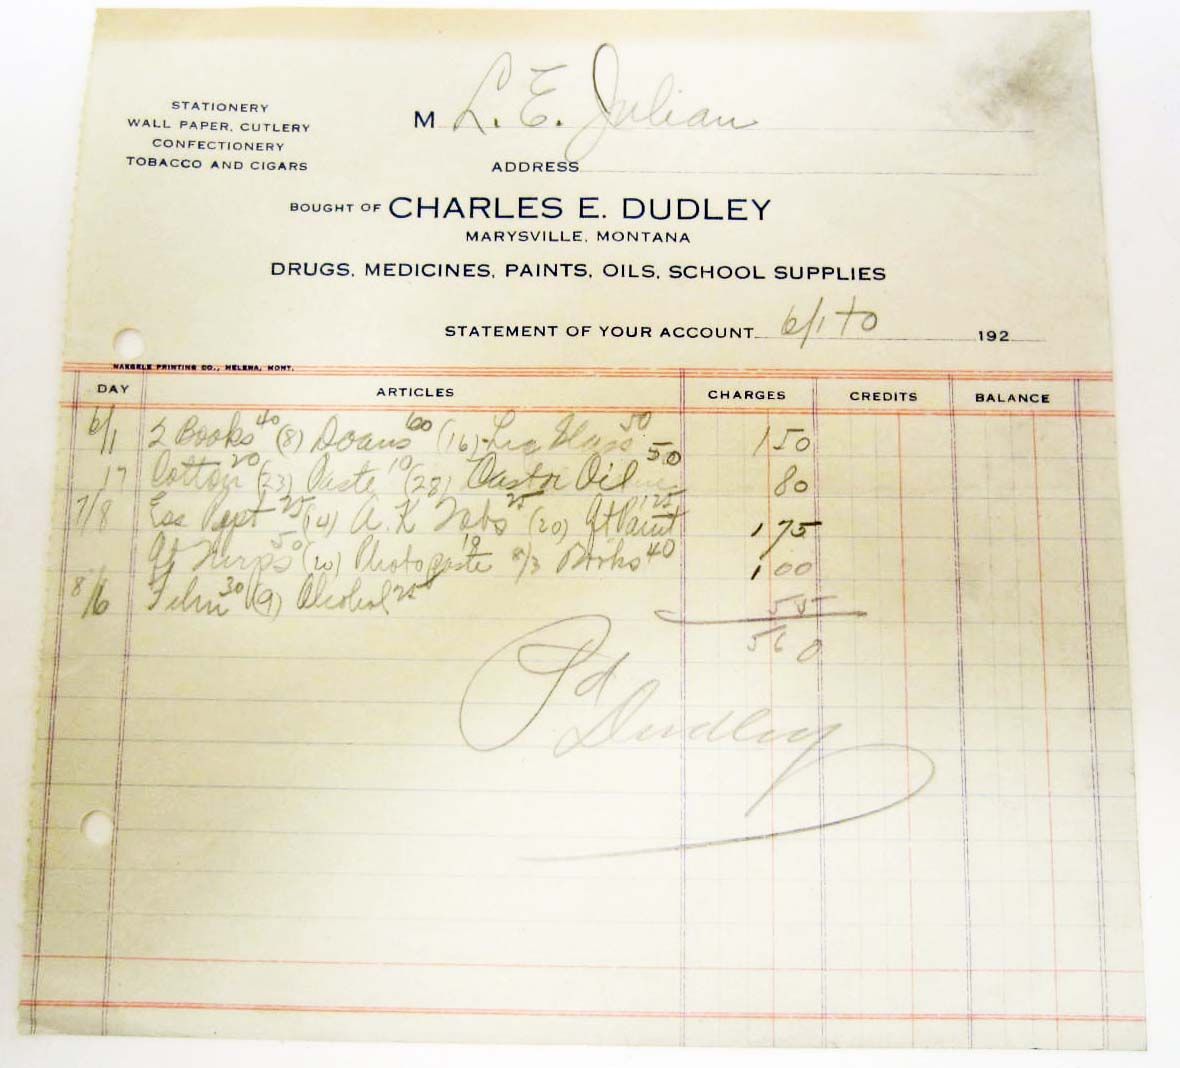 STATIONERY
WALL PAPER, CUTLERY
CONFECTIONERY
TOBACCO AND CIGARS
M L. E. Julian
ADDRESS
BOUGHT OF CHARLES E. DUDLEY
MARYSVILLE, MONTANA
DRUGS, MEDICINES, PAINTS, OILS, SCHOOL SUPPLIES
STATEMENT OF YOUR ACCOUNT 6/1 to 192
NAEGELE PRINTING CO., HELENA, MONT.
DAY ARTICLES CHARGES CREDITS BALANCE
6/1 2 Books 40 (8) Doans 60 (16) 50 1 50
17 Cotton 20 (23) Paste 10 (28) Castor Oil 50 80
7/8 Ess Pept 25 (14) A. K Tabs 25 (20) Qt Paint 125 1 75
Qt Turps 50 (20) Photo paste 10 8/3 Books 40 1 00
8/6 Film 30 (9) Alcohol 25 55
5 60
Pd
Dudley